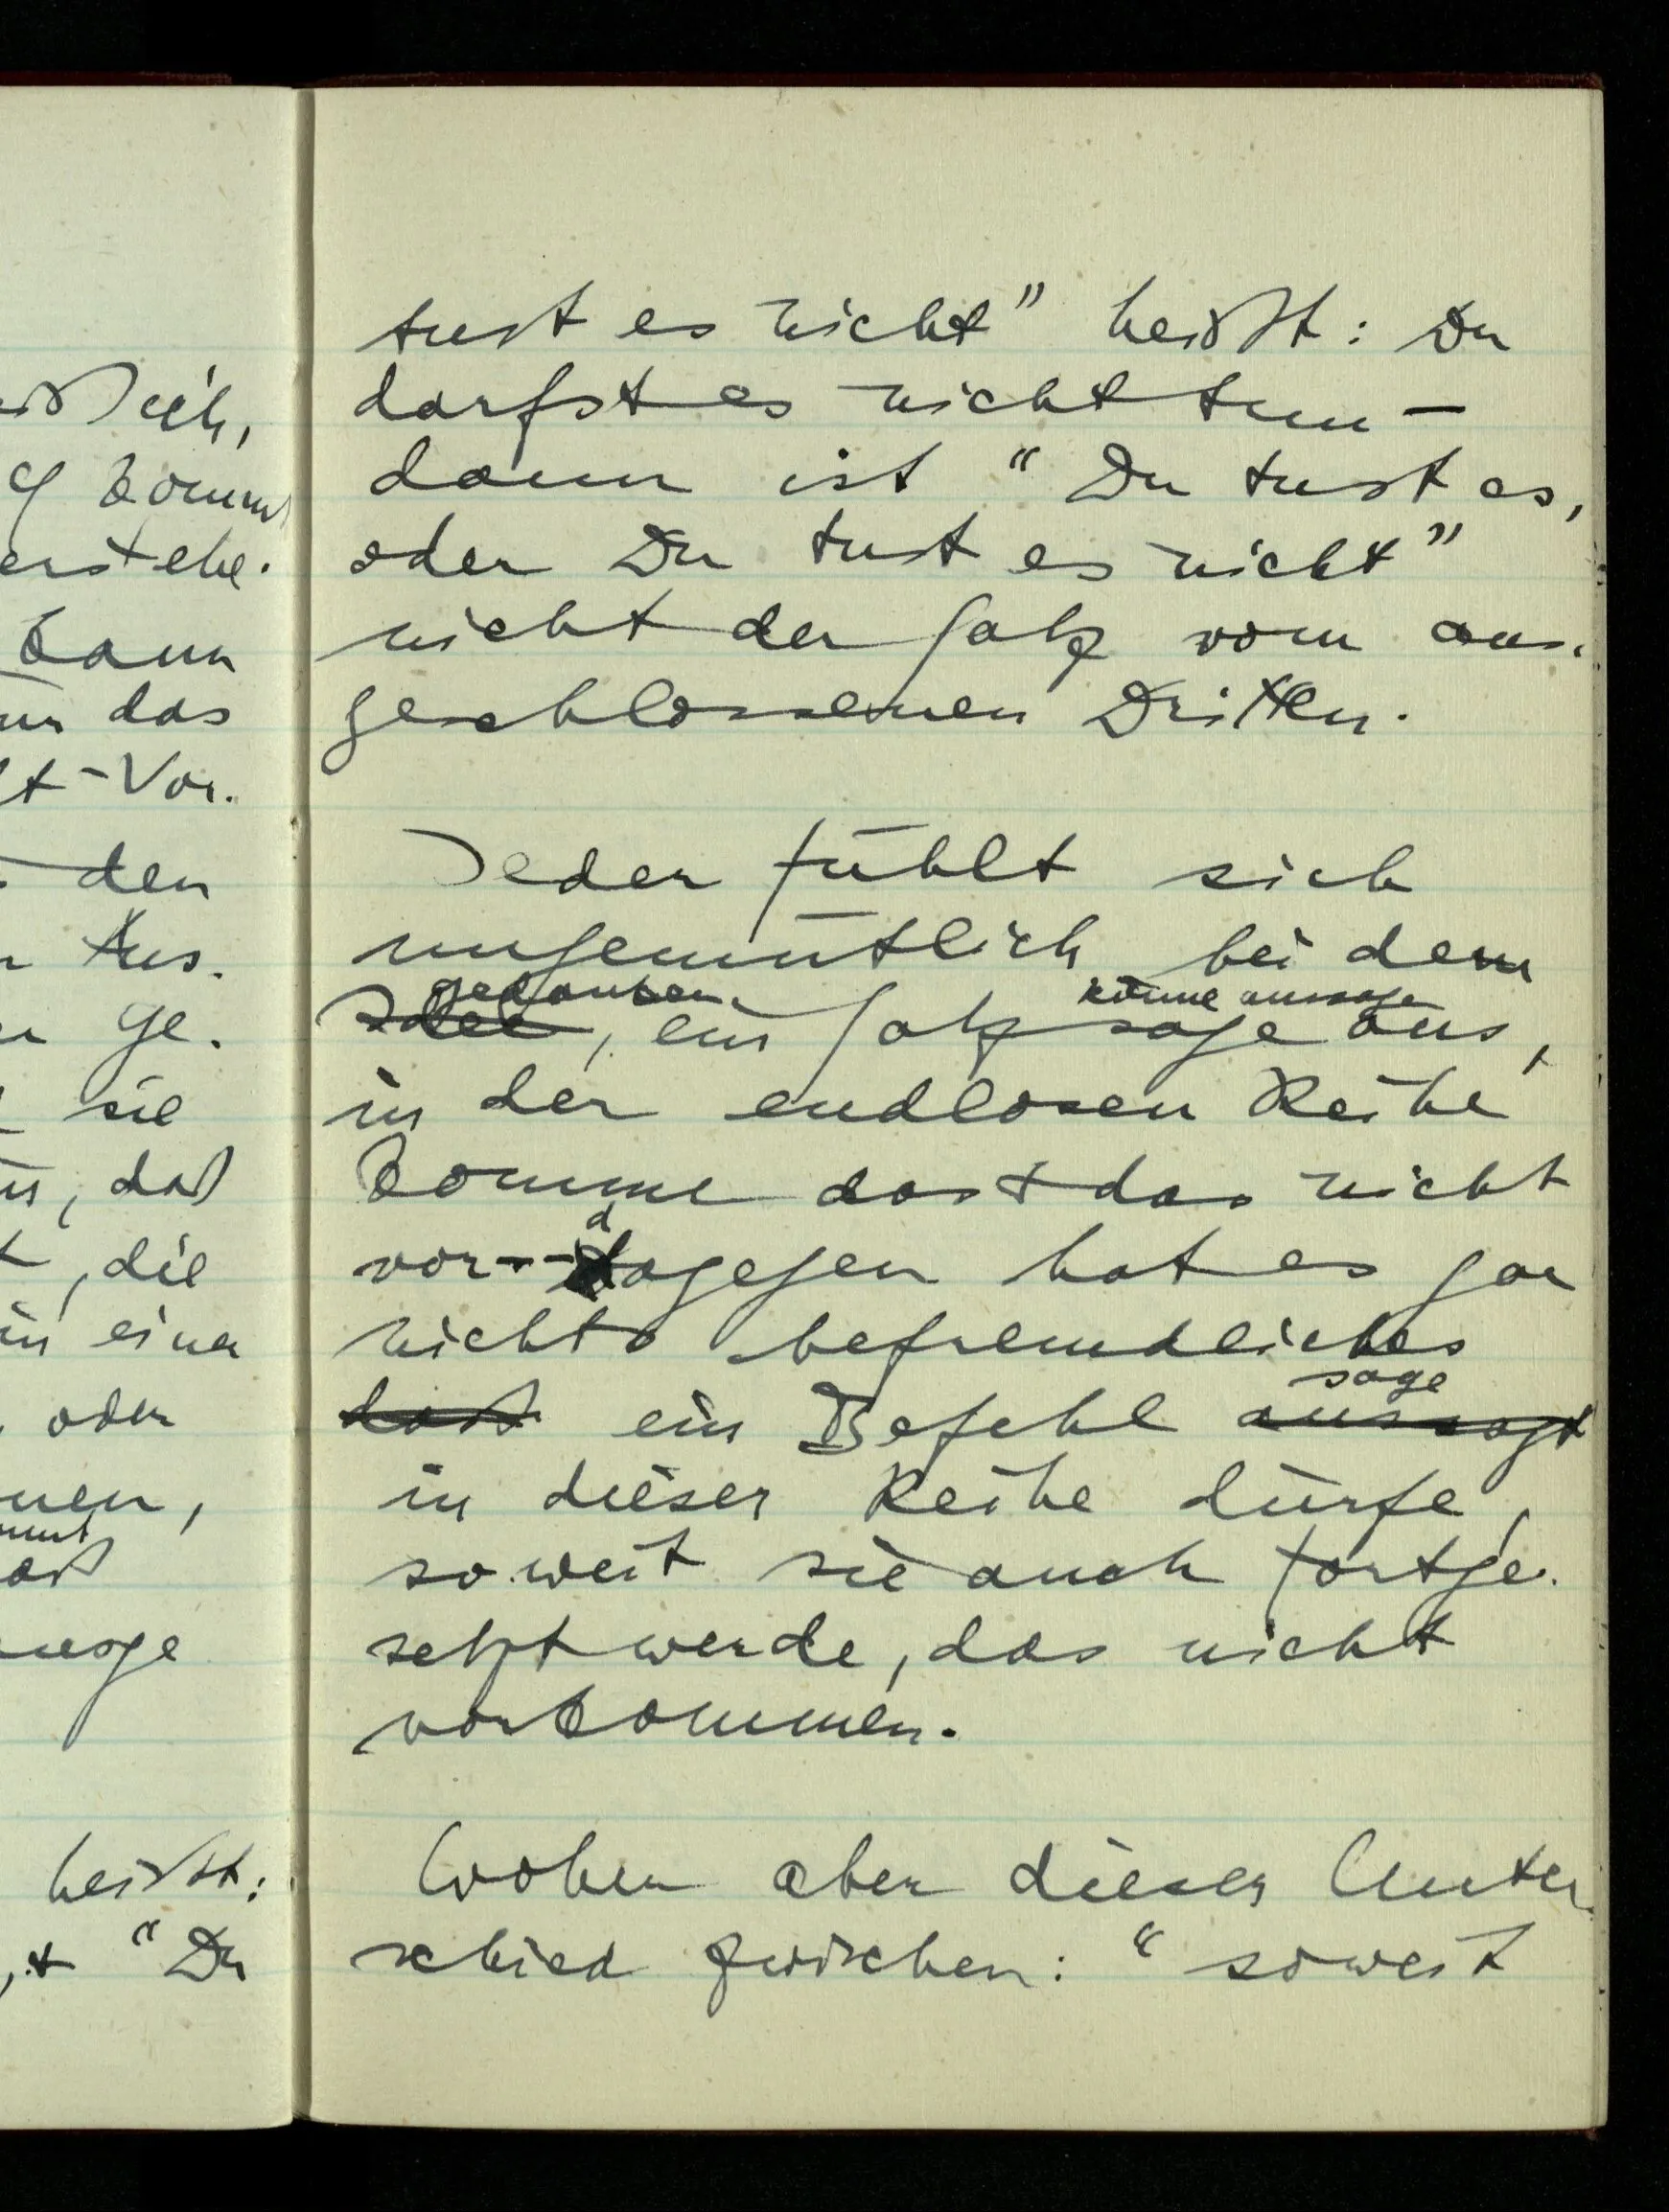 eiß ich,
g komm
erstehe.
kann
um das
lt-Vor.
den
Aus.
ge.
sie
, daß
, die
in einer
oder
nen,
aß
heißt:
, + "Du
tust es nicht" heißt: Du
darfst es nicht tun –
dann ist "Du tust es,
oder Du tust es nicht"
nicht der Satz vom aus-
geschlossenen Dritten.
Jeder fühlt sich
ungemütlich bei dem
Gedanken könne aussage
Idee, ein Satz sage aus,
in der endlosen Reihe
komme das + das nicht
vor -- dagegen hat es gar
nichts befremdliches
sage
daß ein Befehl aussagt
in dieser Reihe dürfe,
soweit sie auch fortge-
setzt werde, das nicht
vorkommen.
Woher aber dieser Unter-
schied zwischen: "soweit